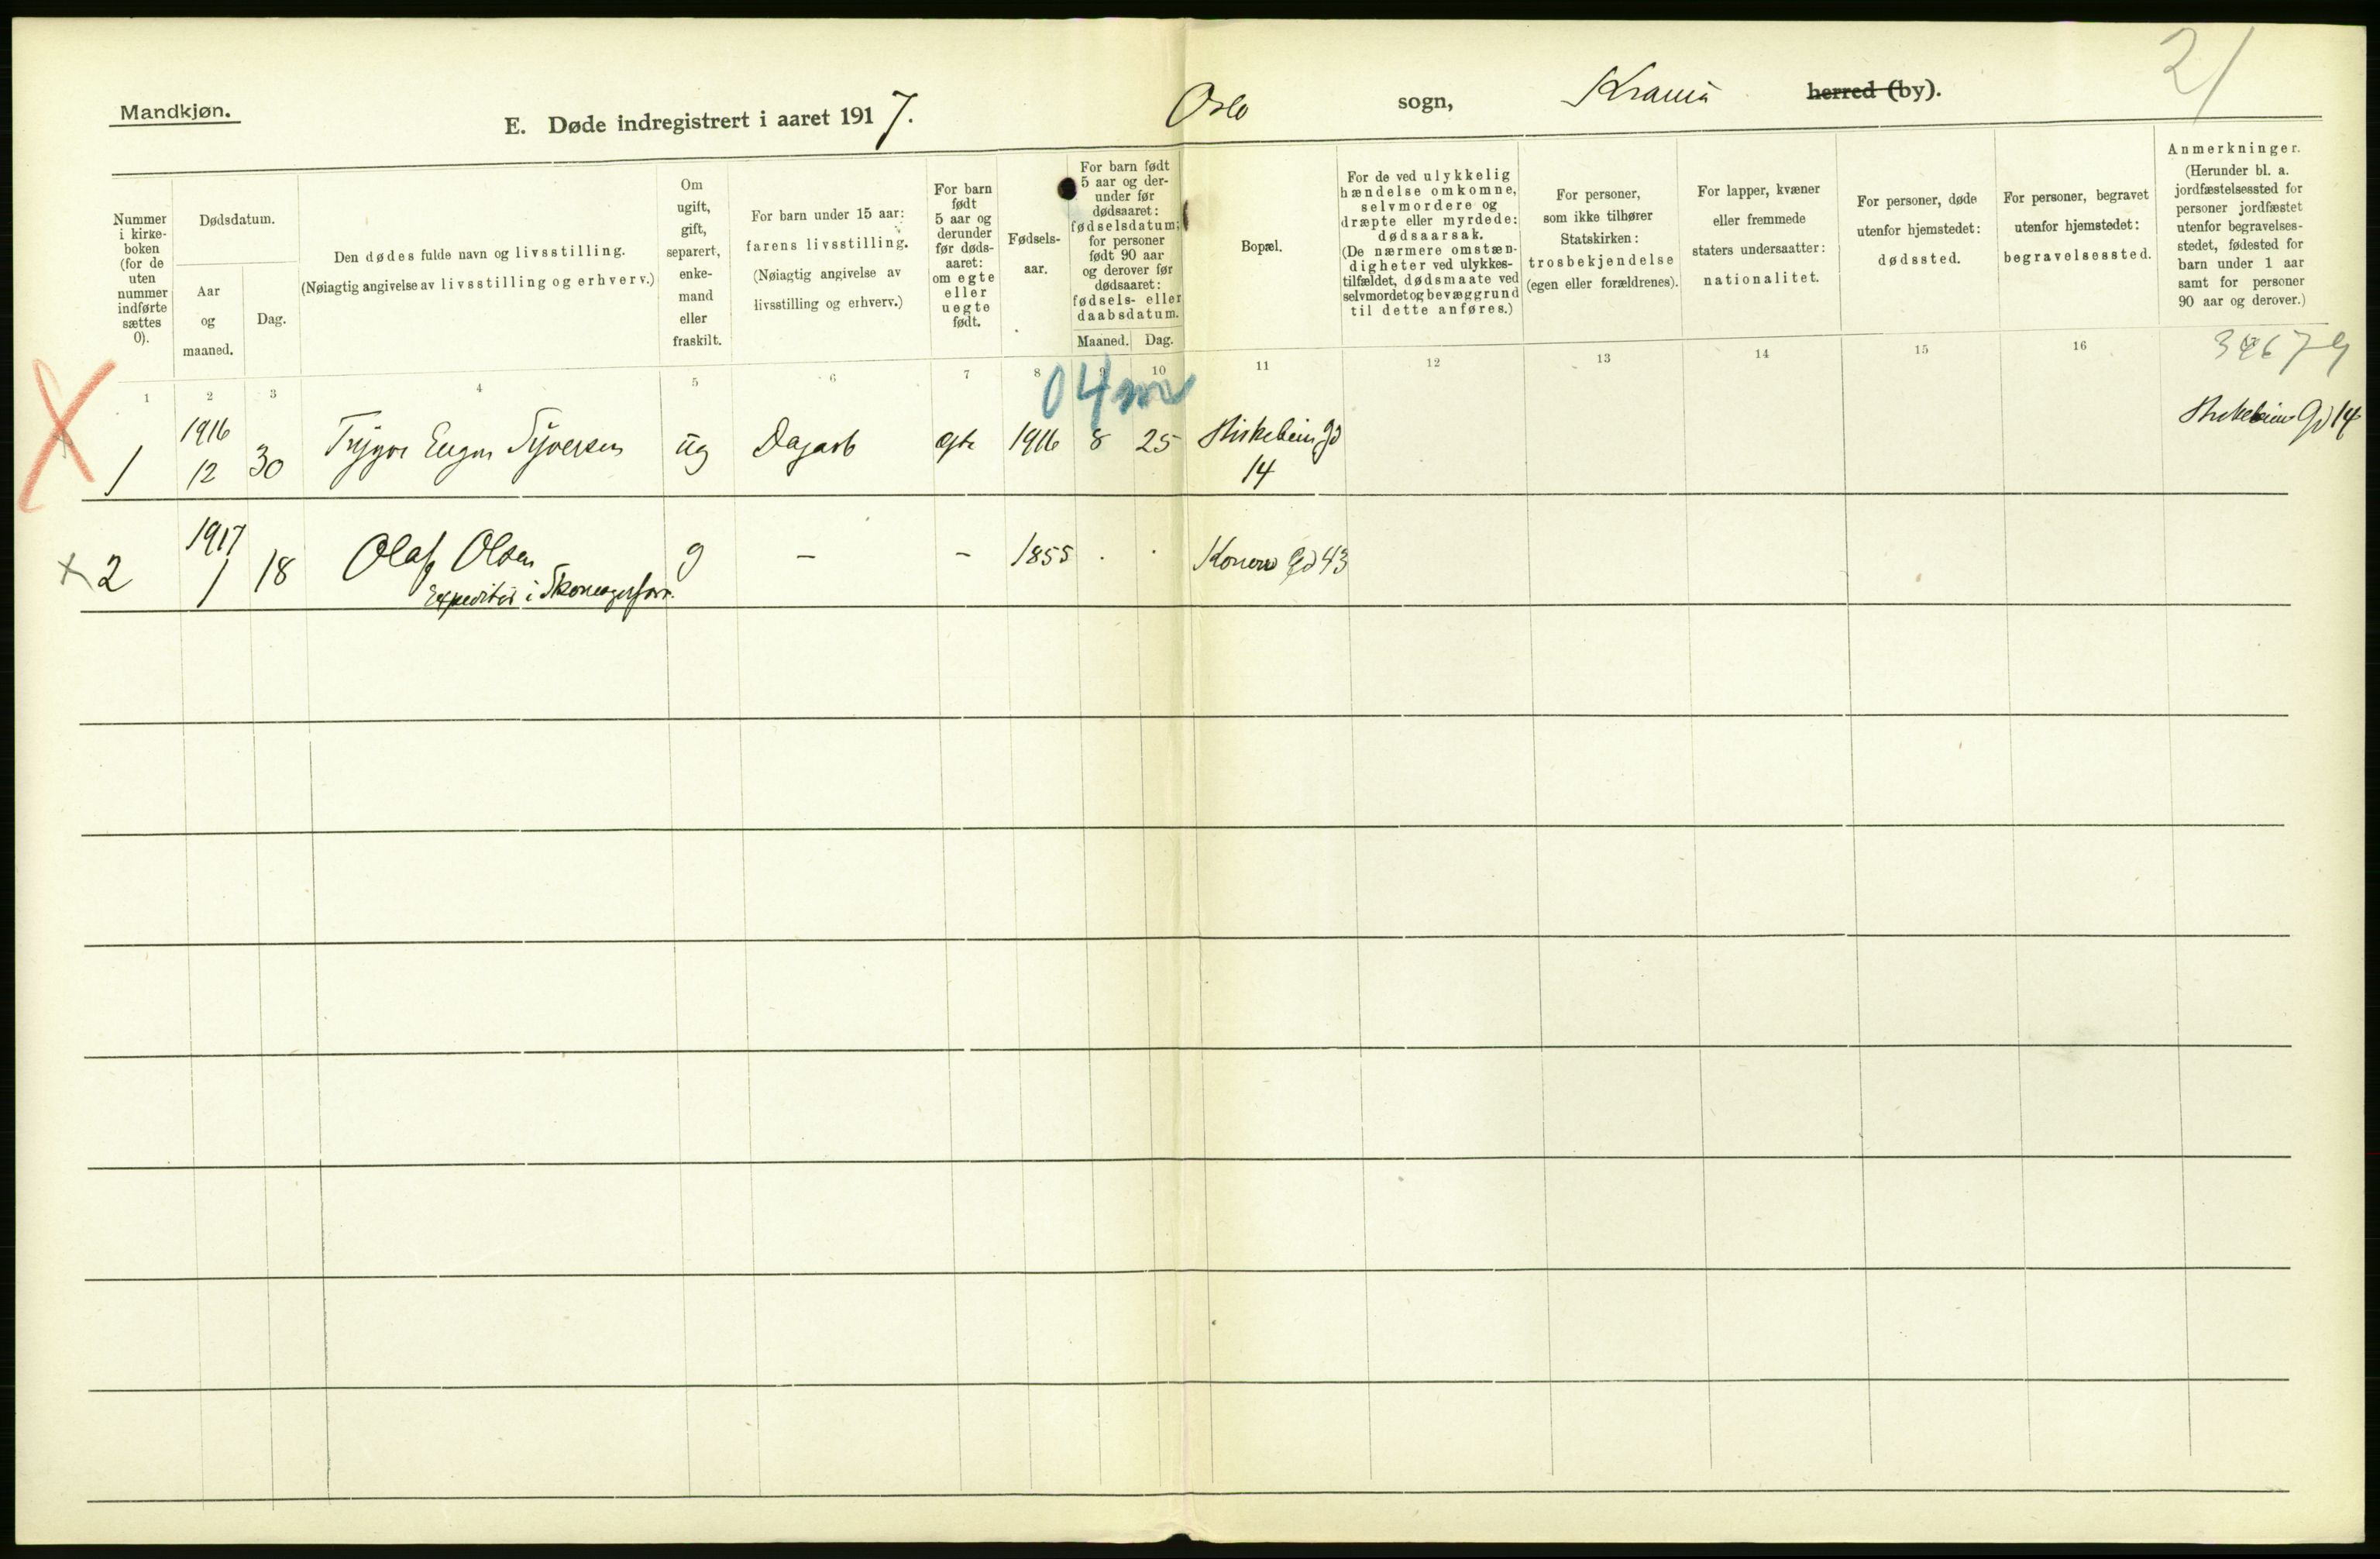 Mandkjøn.
E. Døde indregistrert i aaret 1917.
Oslo sogn,
Krania herred (by).
21
Nummer
i kirke-
boken
(for de
uten
nummer
indførte
sættes
0).
Dødsdatum.
Aar
og
maaned.
Dag.
Den dødes fulde navn og livsstilling.
(Nøiagtig angivelse av livsstilling og erhverv.)
Om
ugift,
gift,
separert,
enke-
mand
eller
fraskilt.
For barn under 15 aar:
farens livsstilling.
(Nøiagtig angivelse av
livsstilling og erhverv.)
For barn
født
5 aar og
derunder
før døds-
aaret:
om egte
eller
uegte
født.
Fødsels-
aar.
For barn født
5 aar og der-
under før
dødsaaret:
fødselsdatum;
for personer
født 90 aar
og derover før
dødsaaret:
fødsels- eller
daabsdatum.
Maaned. Dag.
Bopæl.
For de ved ulykkelig
hændelse omkomne,
selvmordere og
dræpte eller myrdede:
dødsaarsak.
(De nærmere omstæn-
digheter ved ulykkes-
tilfældet, dødsmaate ved
selvmordet og bevæggrund
til dette anføres.)
For personer,
som ikke tilhører
Statskirken:
trosbekjendelse
(egen eller forældrenes).
For lapper, kvæner
eller fremmede
staters undersaatter:
nationalitet.
For personer, døde
utenfor hjemstedet:
dødssted.
For personer, begravet
utenfor hjemstedet:
begravelsessted.
Anmerkninger.
(Herunder bl. a.
jordfæstelsessted for
personer jordfæstet
utenfor begravelses-
stedet, fødested for
barn under 1 aar
samt for personer
90 aar og derover.)
1 2 3 4 5 6 7 8 9 10 11 12 13 14 15 16
04m
1916
1 12 30 Trygve Eugen Syversen ug Dagarb egte 1916 8 25
14
Gd 14
1917
2 1 18 Olaf Olsen g – – 1855 . . Konows Gd 43
Expeditør i Skomagerforr.